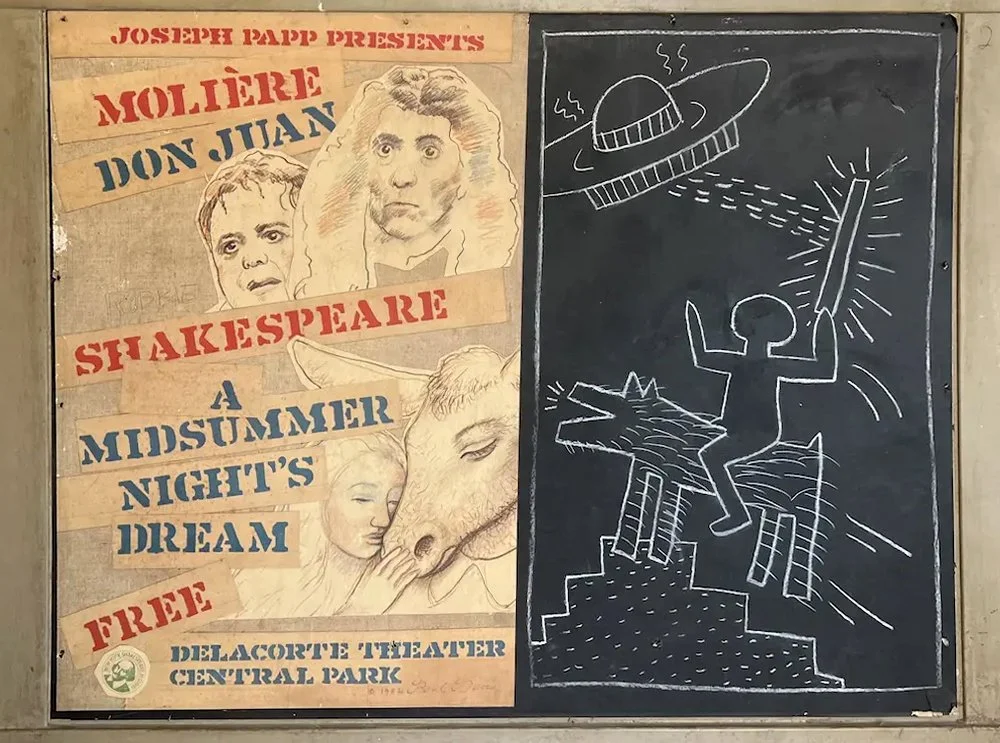 JOSEPH PAPP PRESENTS
MOLIÈRE
DON JUAN
SHAKESPEARE
A
MIDSUMMER
NIGHT'S
DREAM
FREE
DELACORTE THEATER
CENTRAL PARK
2